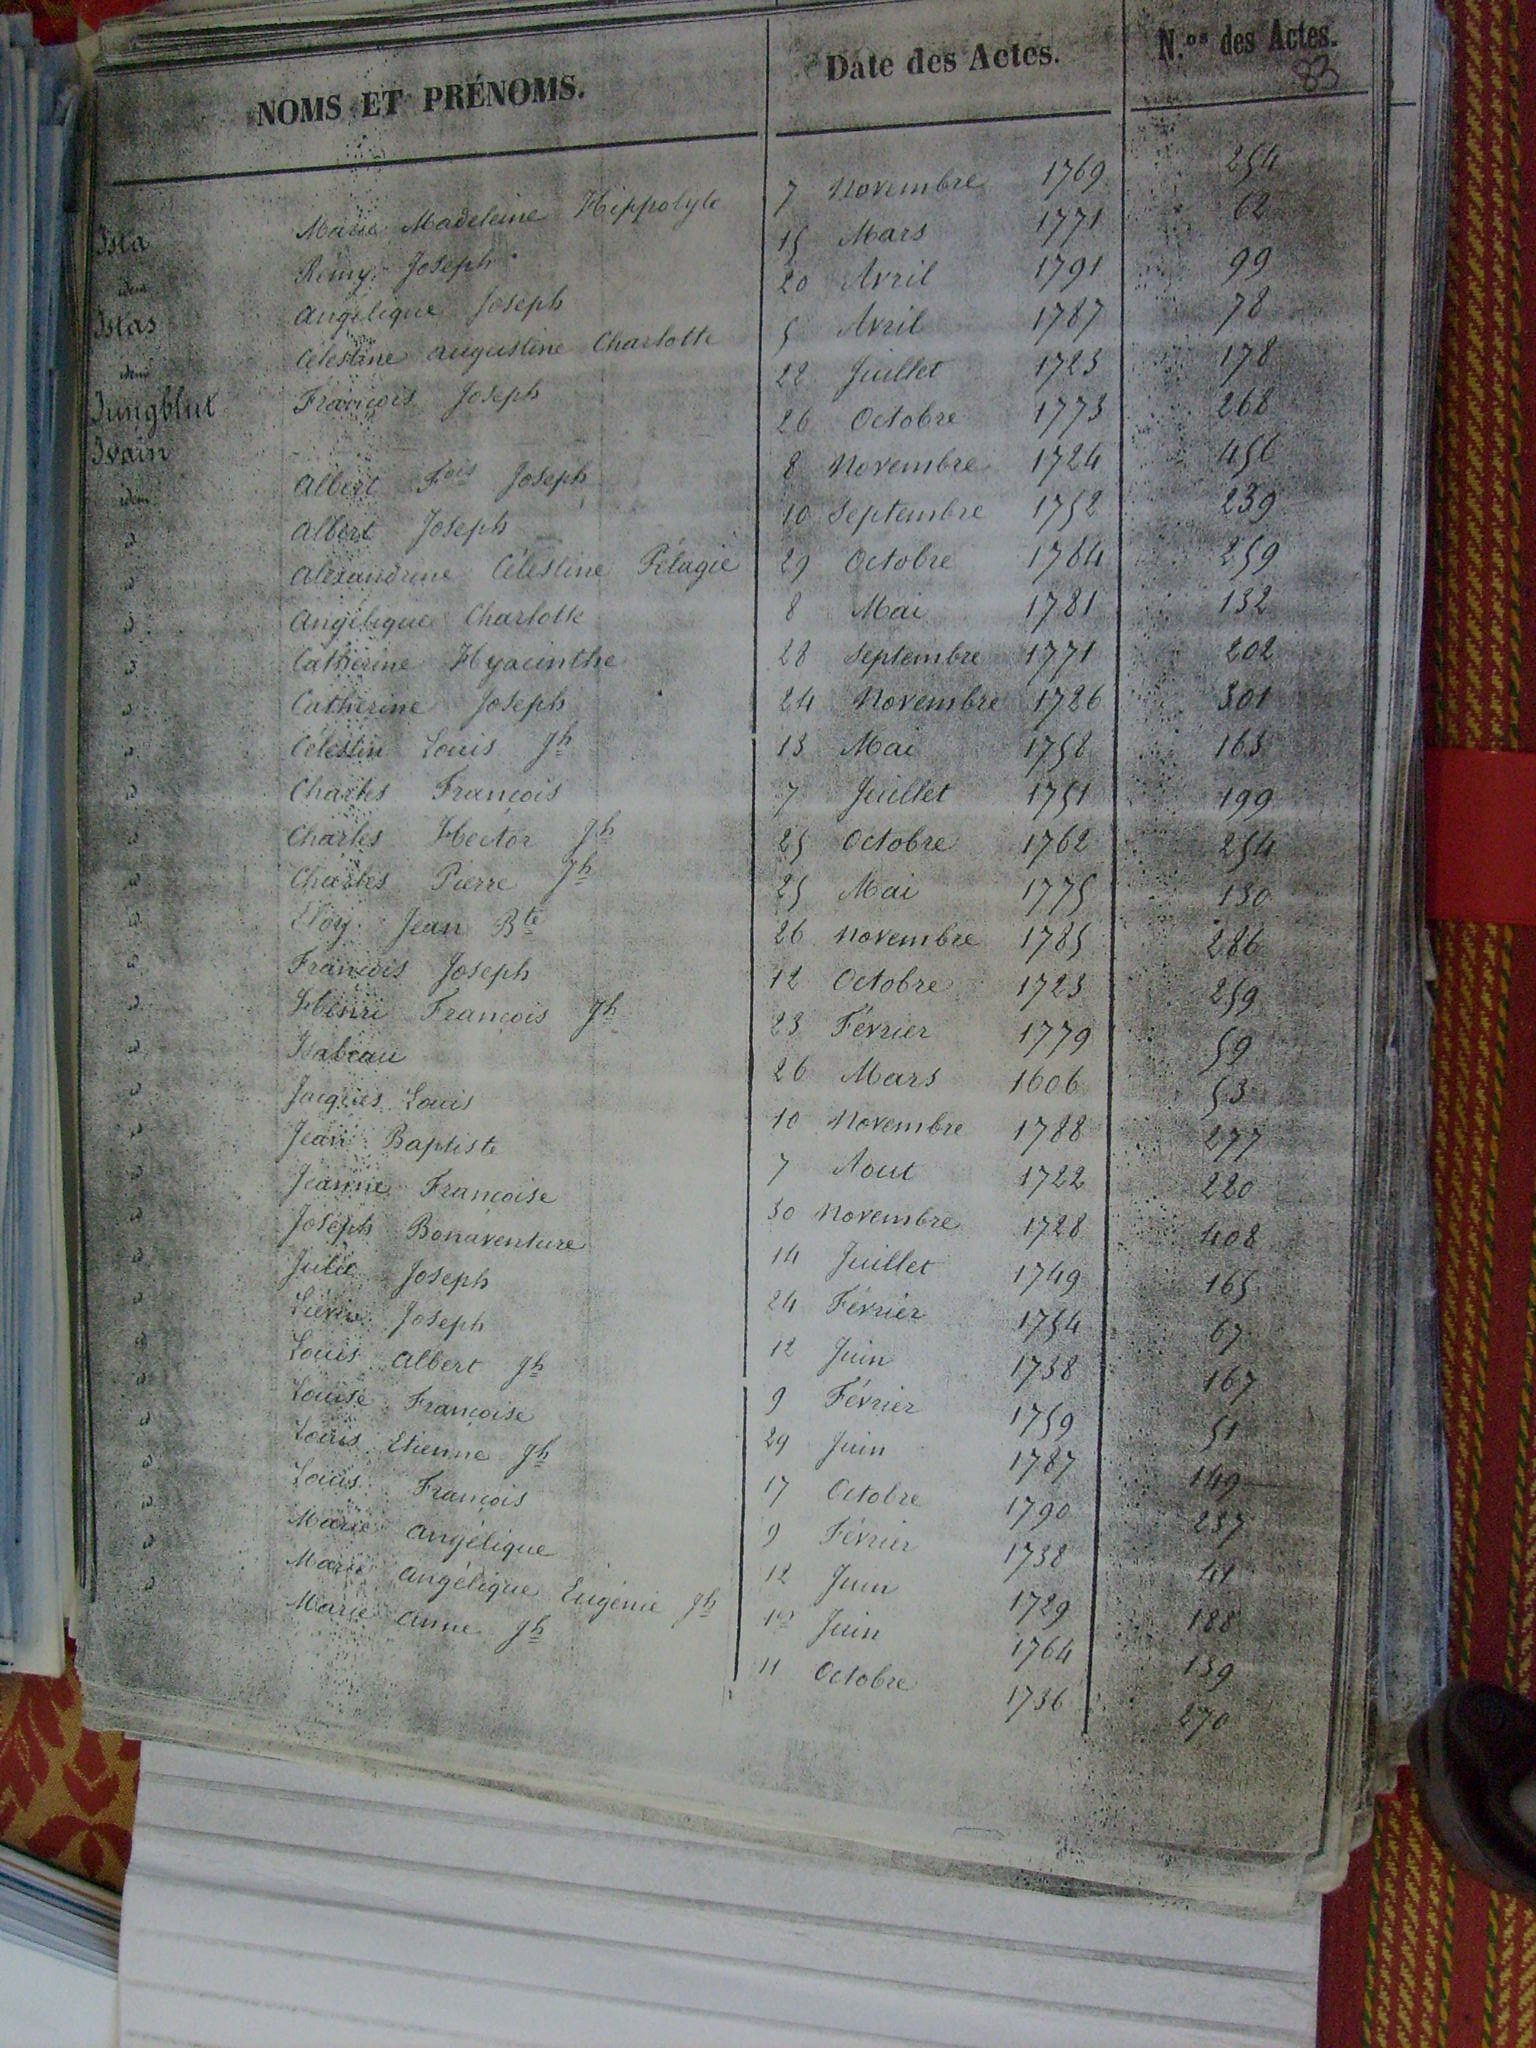 NOMS ET PRÉNOMS. Date des Actes. N.os des Actes.
83
Ista Marie Madeleine Hippolyte 7 Novembre 1769 254
idem Remy Joseph 15 Mars 1771 62
Istas Angélique Joseph 20 Avril 1791 99
idem Celestine Augustine Charlotte 5 Avril 1787 78
Jungblut François Joseph 22 Juillet 1723 178
Ivain 26 Octobre 1773 268
idem Albert Fois Joseph 8 Novembre 1724 456
id Albert Joseph 10 Septembre 1752 239
id Alexandrine Célestine Pélagie 29 Octobre 1764 259
id Angélique Charlotte 8 Mai 1781 132
id Catherine Hyacinthe 28 Septembre 1771 202
id Catherine Joseph 24 Novembre 1726 301
id Celestin Louis Jh 13 Mai 1758 163
id Charles François 7 Juillet 1751 199
id Charles Hector Jh 25 Octobre 1762 254
id Charles Pierre Jh 25 Mai 1775 130
id Eloy Jean Bte 26 Novembre 1785 286
id François Joseph 12 Octobre 1723 259
id Henri François Jh 23 Février 1779 59
id Isabeau 26 Mars 1606 53
id Jacques Louis 10 Novembre 1788 277
id Jean Baptiste 7 Aout 1722 220
id Jeanne Françoise 30 Novembre 1728 408
id Joseph Bonaventure 14 Juillet 1749 165
id Julie Joseph 24 Février 1754 67
id Liévin Joseph 12 Juin 1738 167
id Louis Albert Jh 9 Février 1759 51
id Louise Françoise 29 Juin 1787 149
id Louis Etienne Jh 17 Octobre 1790 237
id Louis François 9 Février 1738 41
id Marie Angélique 12 Juin 1729 188
id Marie Angélique Eugénie Jh 1er Juin 1764 139
id Marie Anne Jh 11 Octobre 1736 270